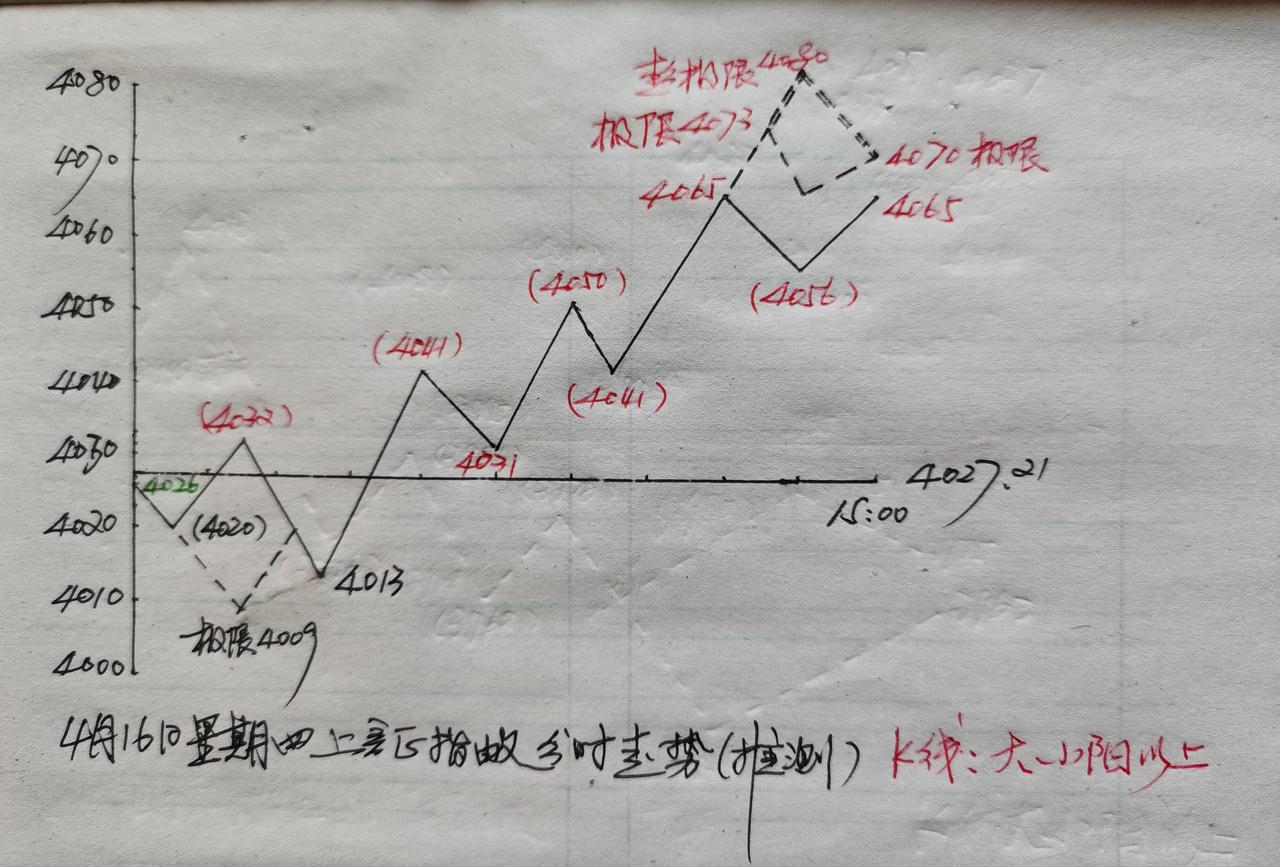 4080
4070
4060
4050
4040
4030
4020
4010
4000
超极限4080
极限4073
4070极限
4065
4065
(4056)
(4050)
(4041)
(4041)
(4032)
4031
4026
(4020)
4013
极限4009
4027.21
15:00
4月16日星期四上证指数分时走势(推测) K线:大小阳以上